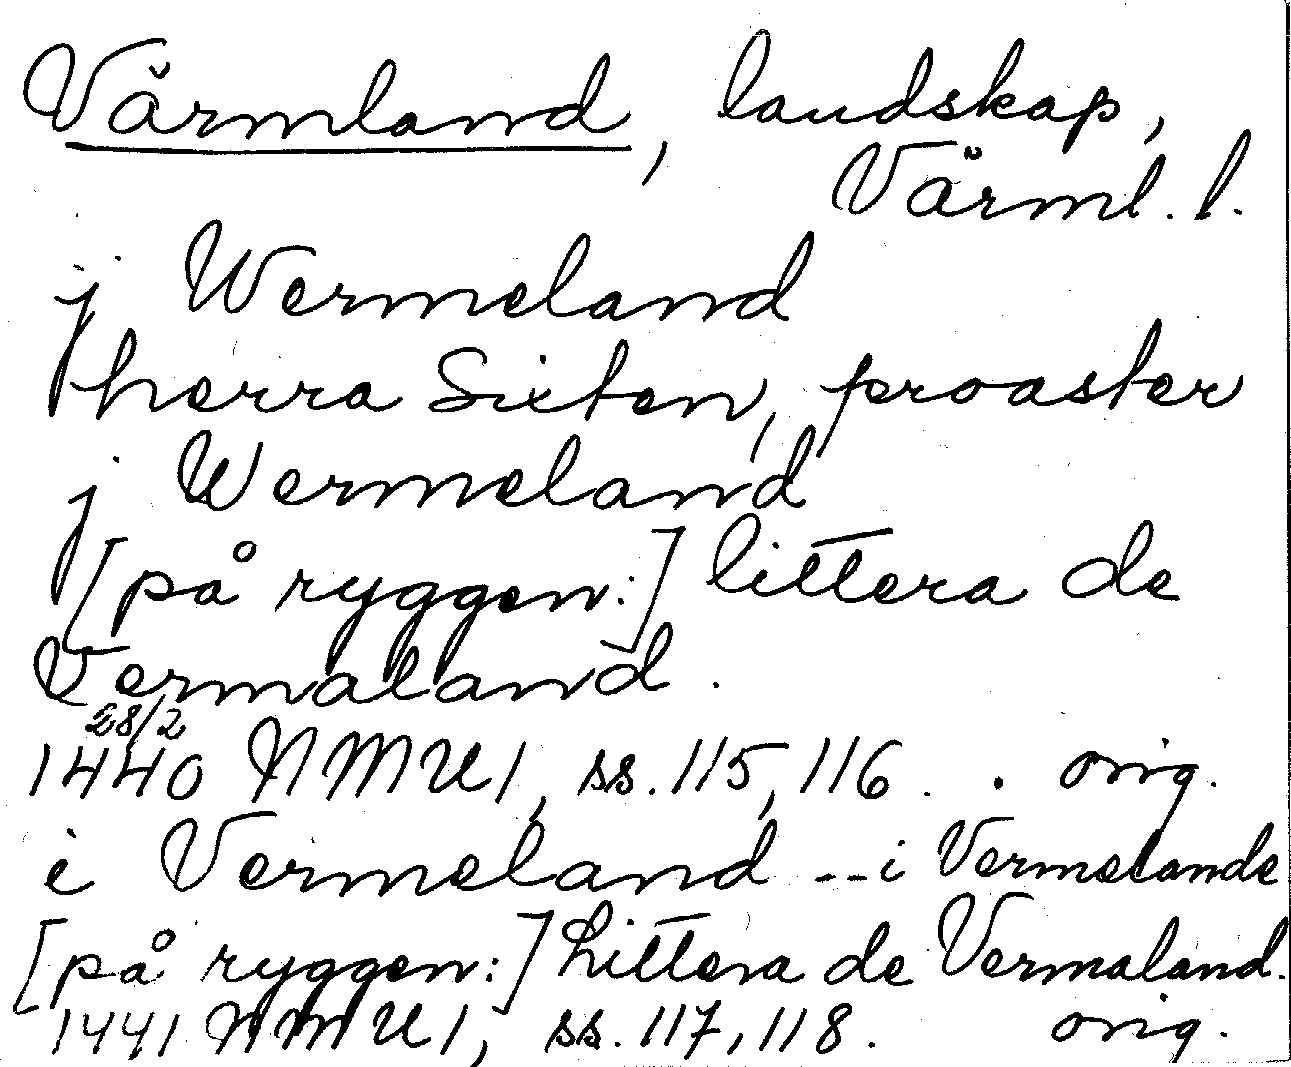 Värmland, landskap,
Värml. l.
j Wermeland
herra Sixten, proaster
j Wermeland
[på ryggen:] littera de
Vermaland.
28/2
1440 NMU1, ss. 115, 116. . orig.
i Vermeland --i Vermelande
[på ryggen:] Littera de Vermaland.
1441 NMU1, ss. 117, 118. orig.